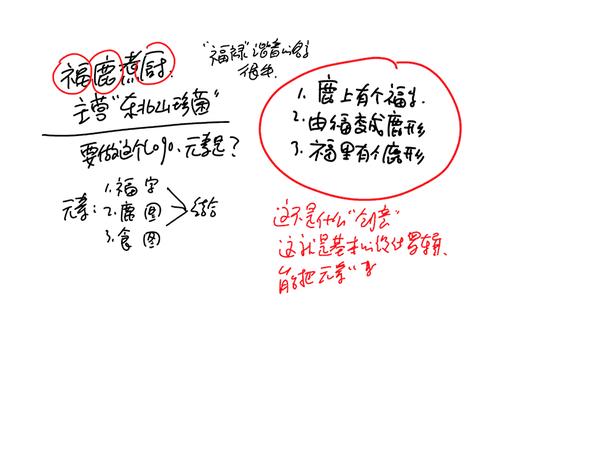 福鹿煮厨.
主营"东北山珍菌"
要做这个logo、元素是？
元素：
1. 福字
2. 鹿图
3. 食图
结合
"福禄"谐音的名字
很多.
1. 鹿上有个福字.
2. 由福变成鹿形
3. 福里有个鹿形
这不是什么"创意"
这就是基本的设计逻辑、
能把元素"